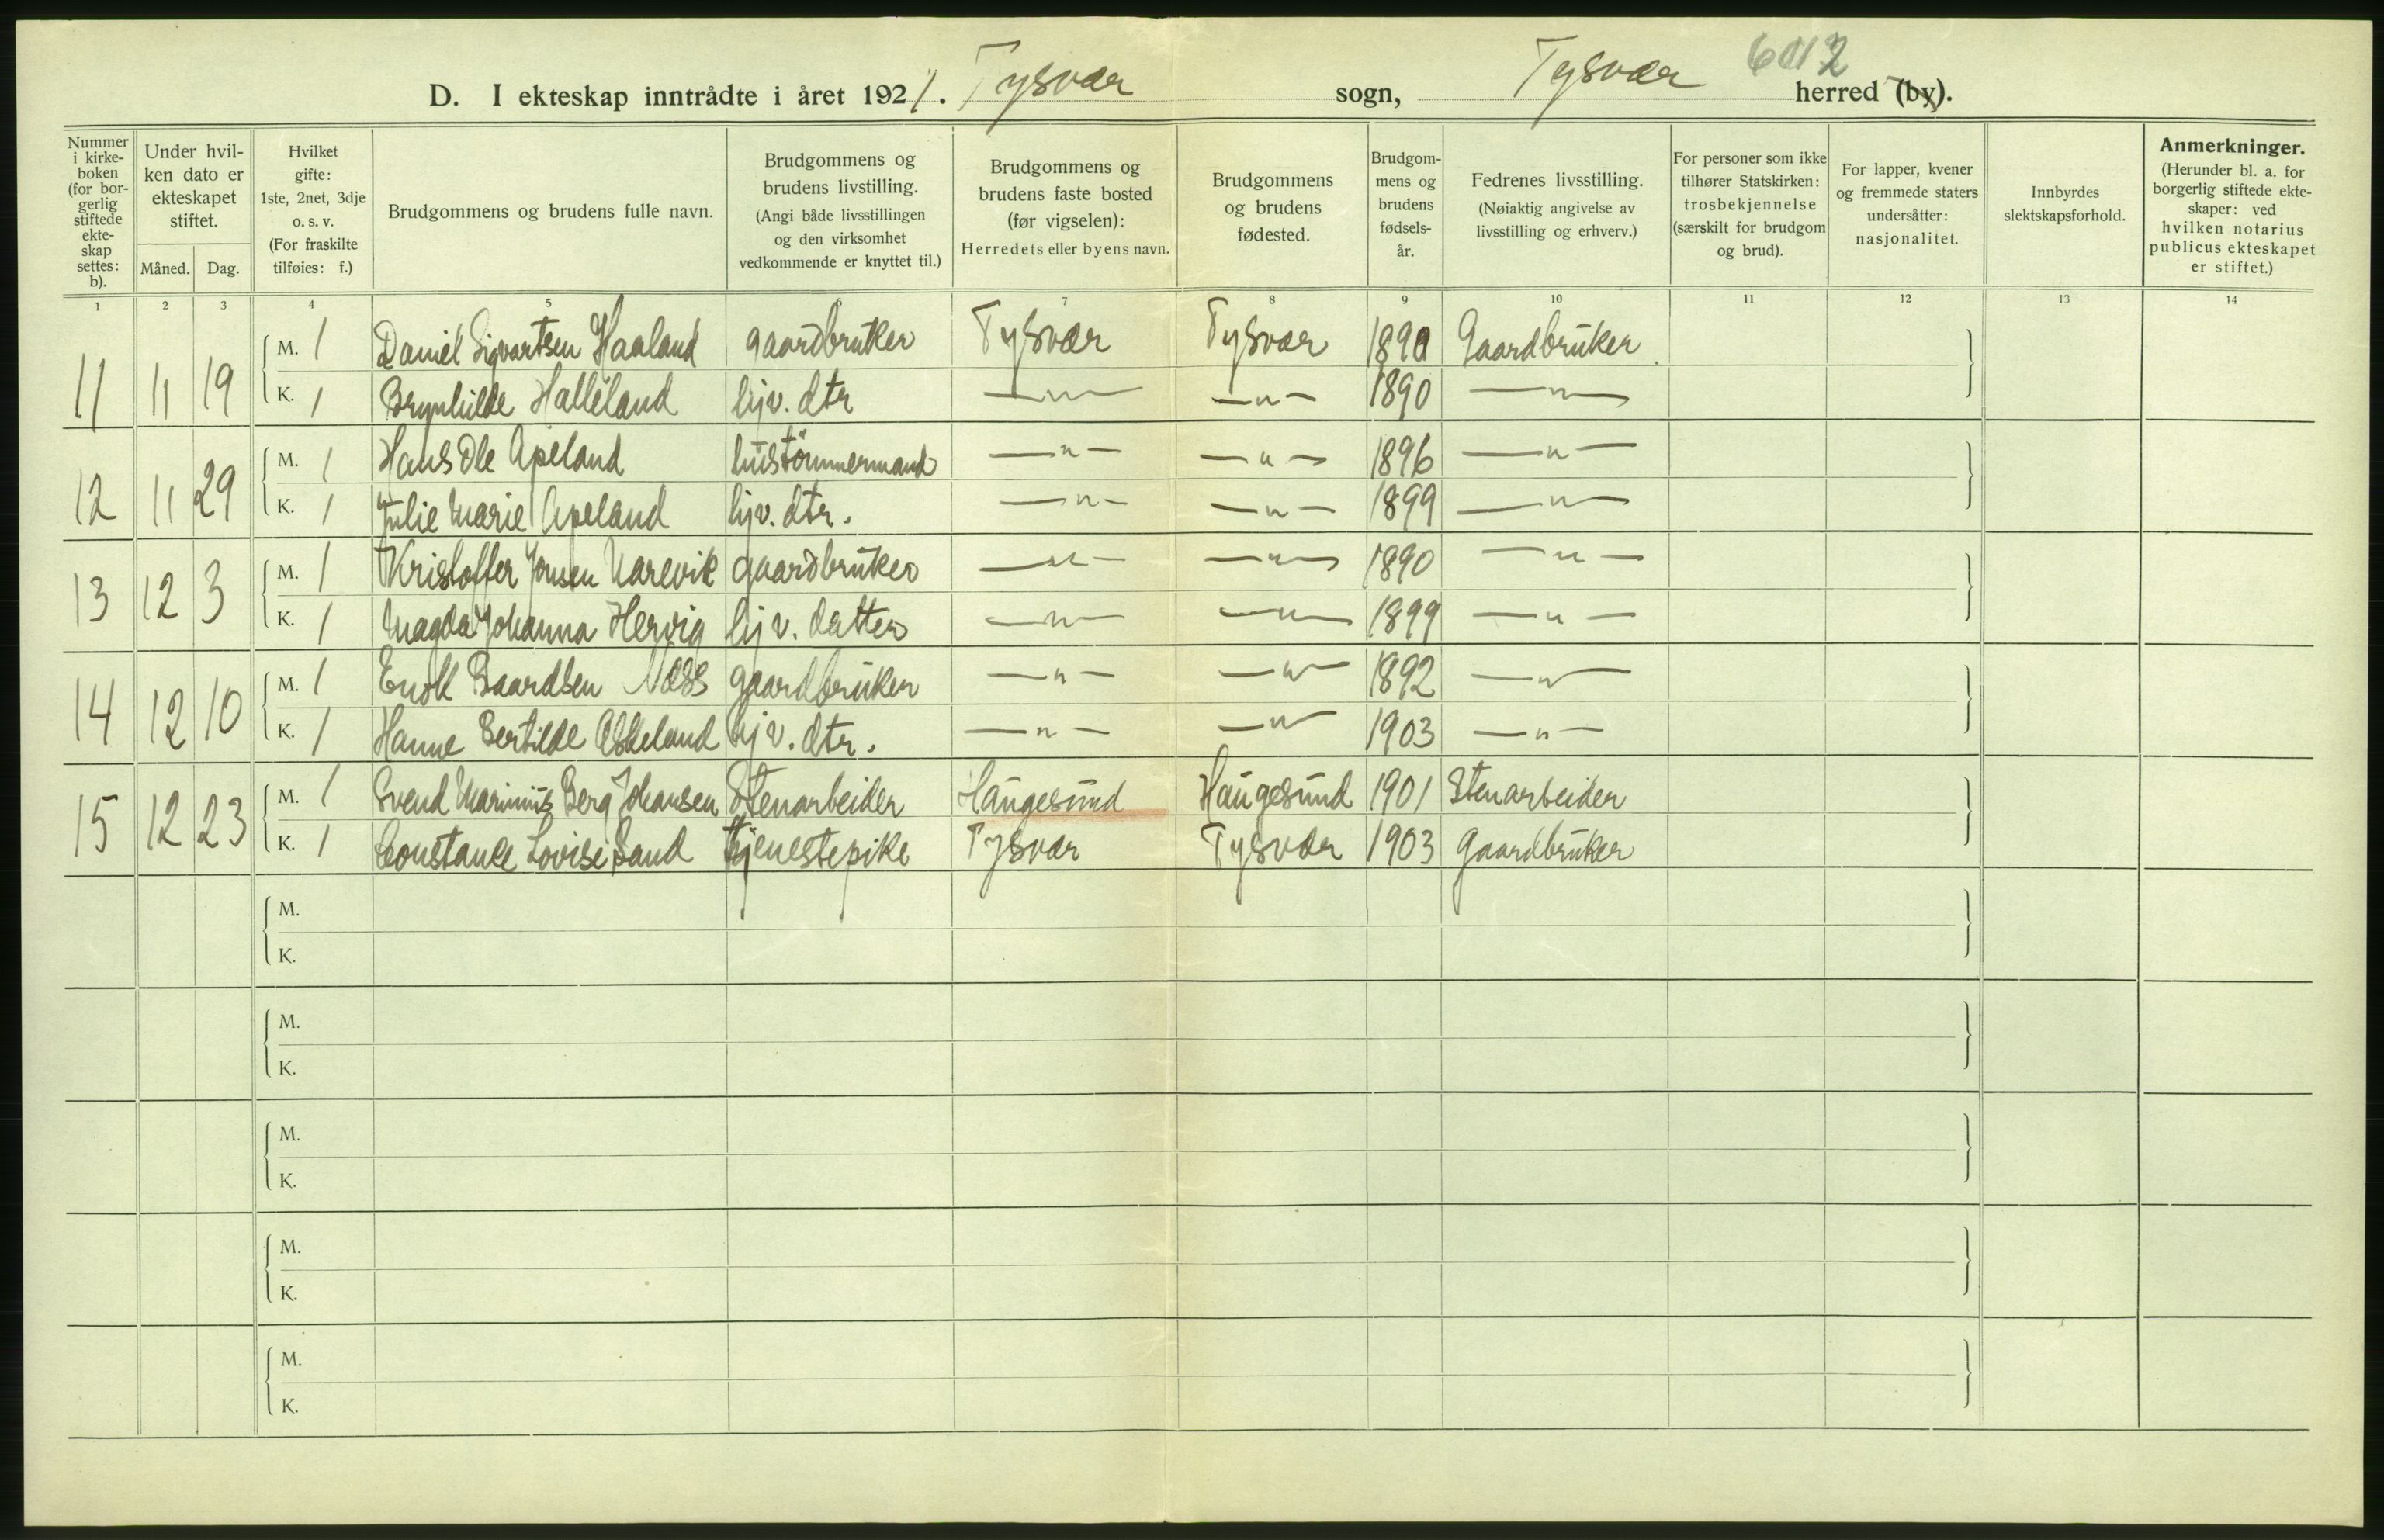 6012
D. I ekteskap inntrådte i året 1921. Tysvær sogn, Tysvær herred (by).
Nummer i kirkeboken (for borgerlig stiftede ekteskap settes: b).
Under hvilken dato er ekteskapet stiftet.
Måned. Dag.
Hvilket gifte: 1ste, 2net, 3dje o. s. v. (For fraskilte tilføies: f.)
Brudgommens og brudens fulle navn.
Brudgommens og brudens livstilling. (Angi både livsstillingen og den virksomhet vedkommende er knyttet til.)
Brudgommens og brudens faste bosted (før vigselen): Herredets eller byens navn.
Brudgommens og brudens fødested.
Brudgommens og brudens fødsels-år.
Fedrenes livsstilling. (Nøiaktig angivelse av livsstilling og erhverv.)
For personer som ikke tilhører Statskirken: trosbekjennelse (særskilt for brudgom og brud).
For lapper, kvener og fremmede staters undersåtter: nasjonalitet.
Innbyrdes slektskapsforhold.
Anmerkninger. (Herunder bl. a. for borgerlig stiftede ekteskaper: ved hvilken notarius publicus ekteskapet er stiftet.)
1 2 3 4 5 6 7 8 9 10 11 12 13 14
11 11 19 M. 1 Daniel Sigvartsen Haaland gaardbruker Tysvær Tysvær 1890 Gaardbruker
K. 1 Brynhilde Halleland hjv. dtr —"— —"— 1890 —"—
12 11 29 M. 1 Hans Ole Apeland hustömmermand —"— —"— 1896 —"—
K. 1 Julie Marie Apeland hjv. dtr. —"— —"— 1899 —"—
13 12 3 M. 1 Kristoffer Jonsen Narevik gaardbruker —"— —"— 1890 —"—
K. 1 Magda Johanna Hervig hjv. datter —"— —"— 1899 —"—
14 12 10 M. 1 Enok Baardsen Næss gaardbruker —"— —"— 1892 —"—
K. 1 Hanne Bertilde Askeland hjv. dtr. —"— —"— 1903 —"—
15 12 23 M. 1 Svend Marinius Berg Johansen Stenarbeider Haugesund Haugesund 1901 Stenarbeider
K. 1 Constance Lovise Sand tjenestepike Tysvær Tysvær 1903 Gaardbruker
M.
K.
M.
K.
M.
K.
M.
K.
M.
K.